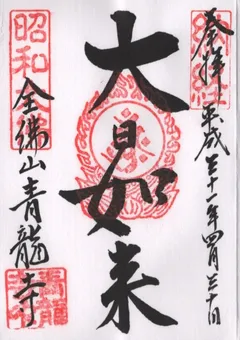 奉拝 平成三十一年四月三十日
大日如来
昭和
全佛山青龍寺